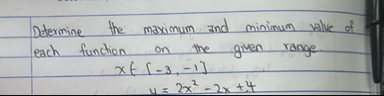 Determine the maximum and minimum value of
each function on the given range
x ∈ [-3, -1]
y = 2x² - 2x + 4